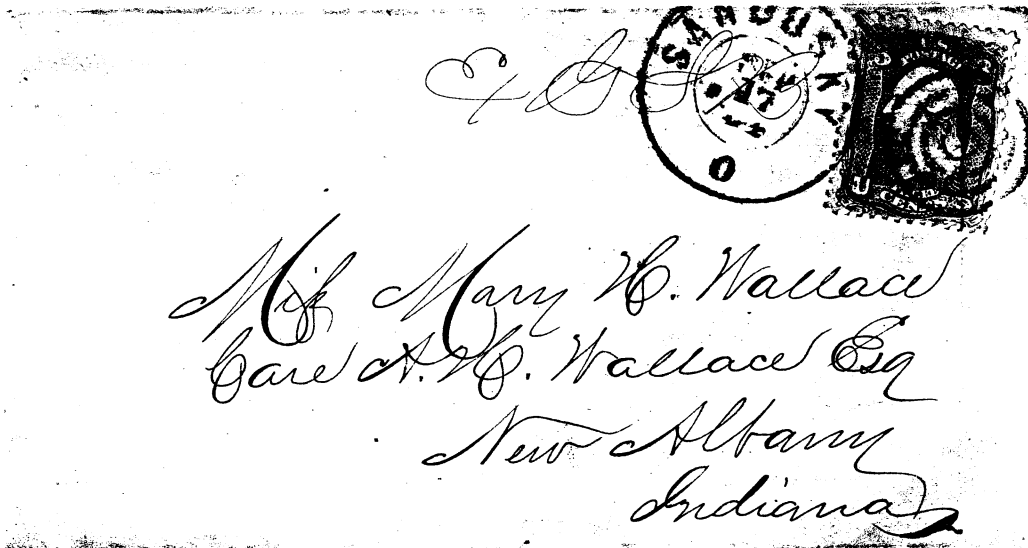 SANDUSKY
17
O
U 3
CENTS
Miss Mary H. Wallace
Care A. H. Wallace Esq
New Albany
Indiana